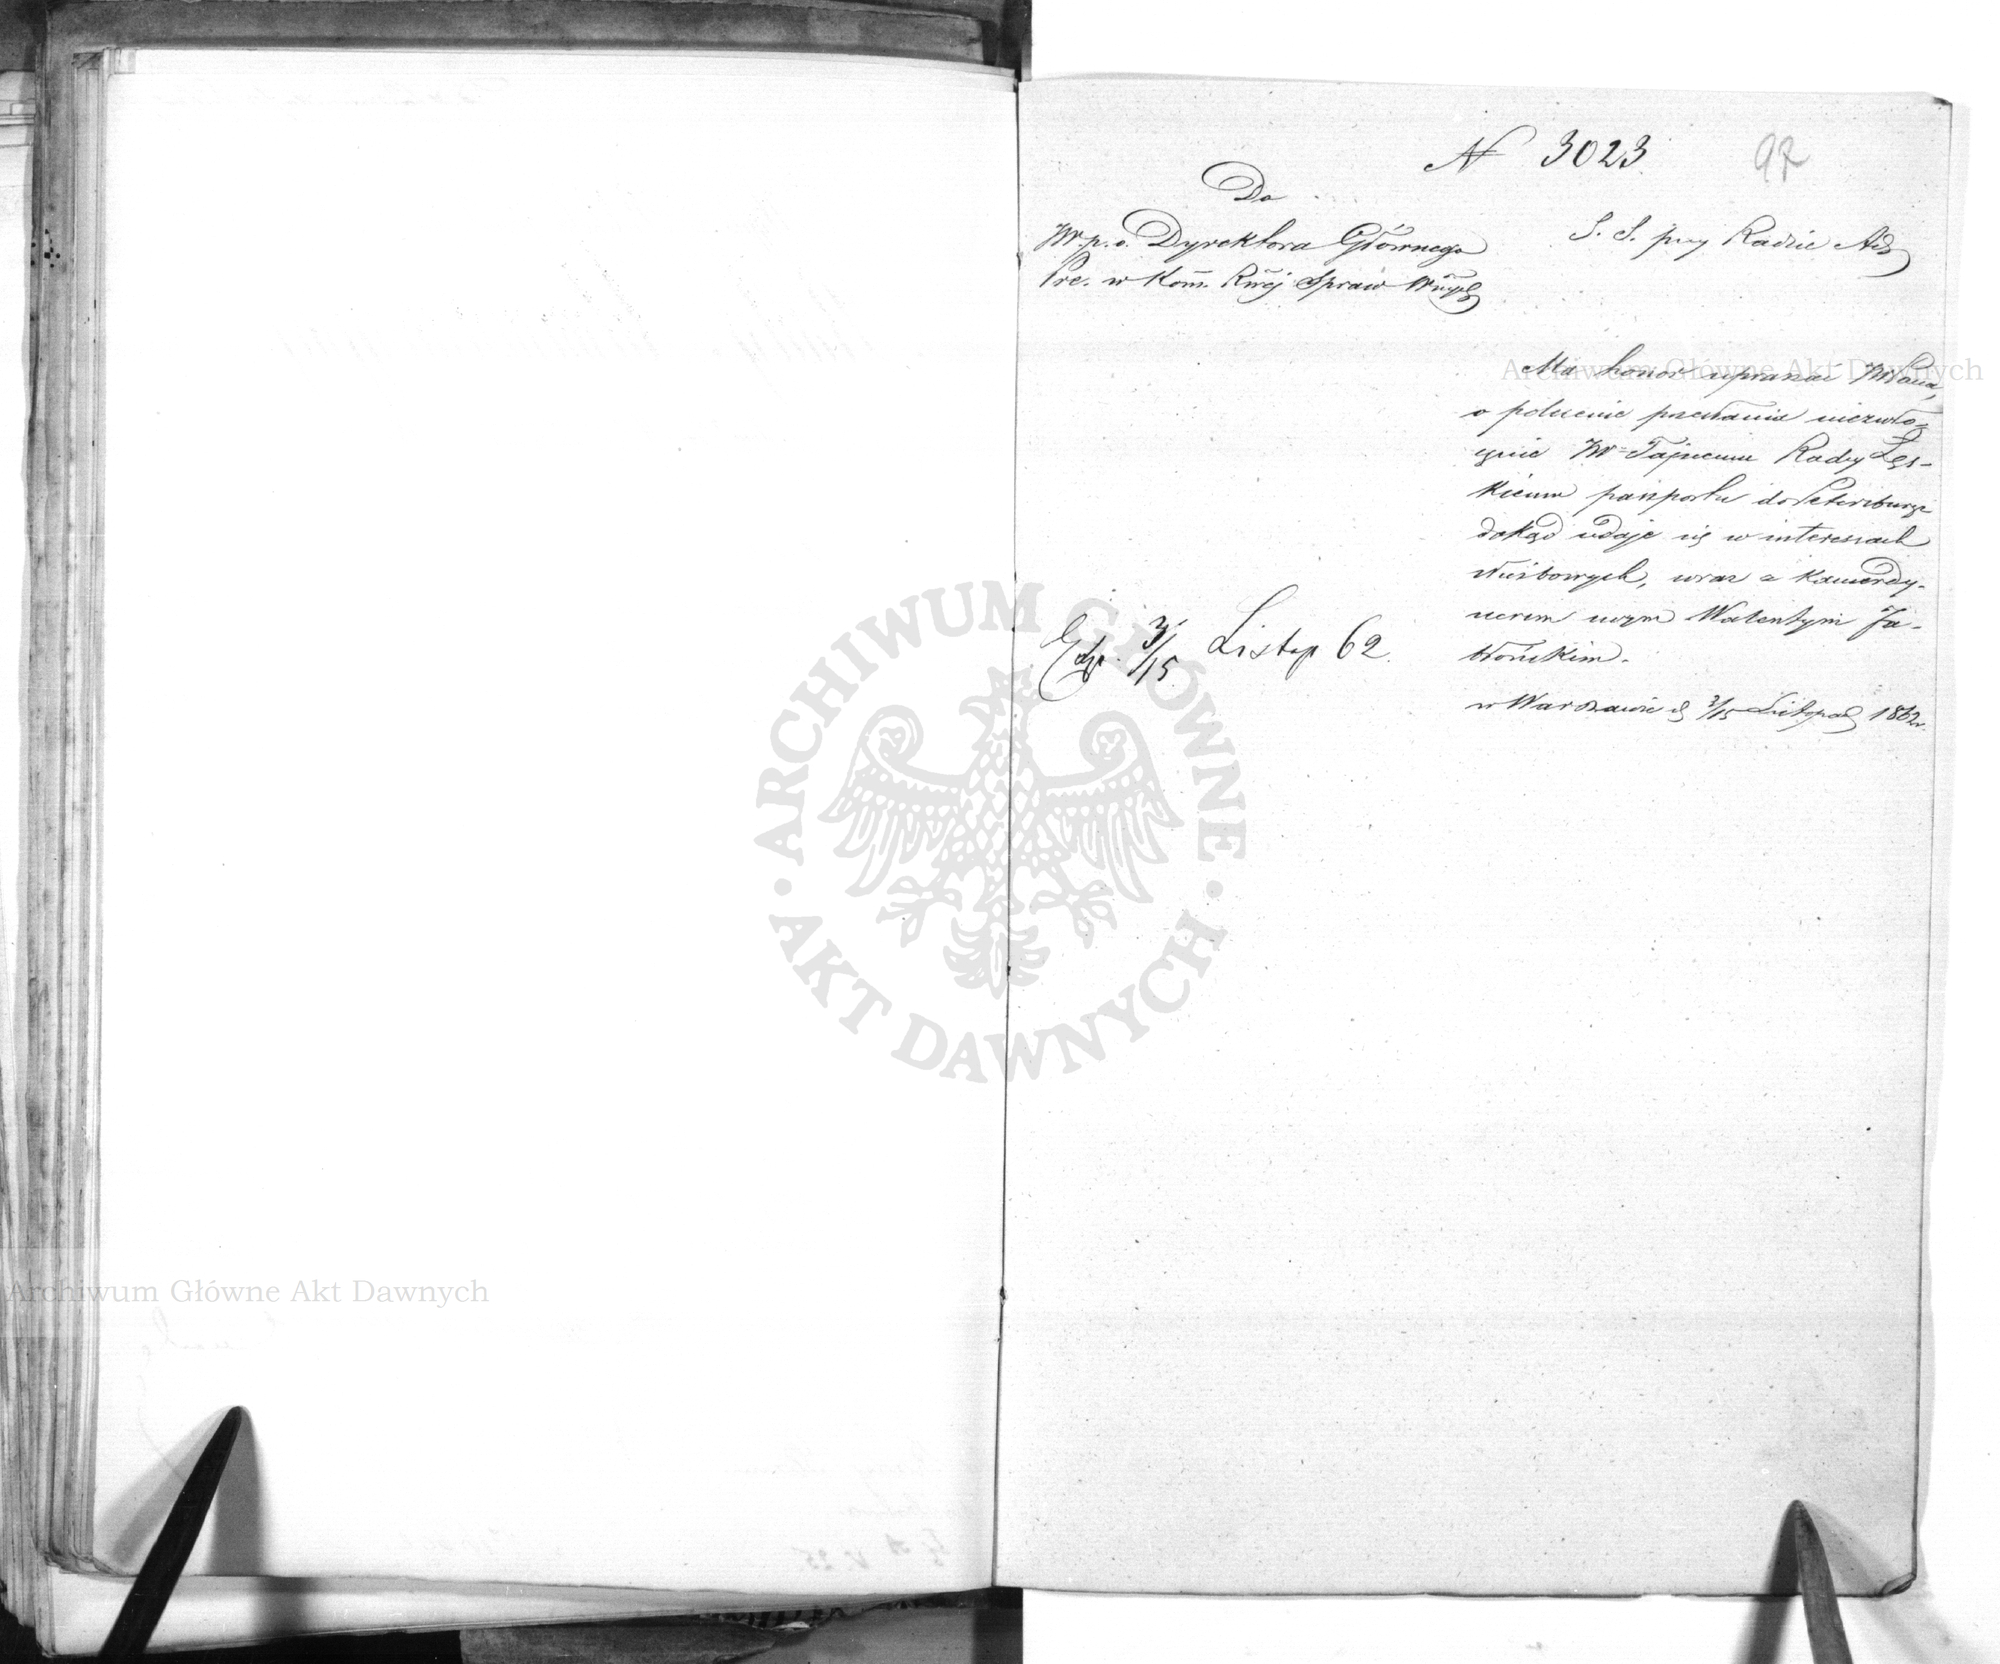 N 3023.
97
Do
JW. p. o. Dyrektora Głównego
Prez. w Kom. Rwéj Spraw Wnych
S. S. przy Radzie Adm
Ma honor upraszać JWPana,
o polecenie przesłania niezwło-
cznie JW Tajnemu Radcy Łęs-
kiemu paszportu do Petersburga
dokąd udaje się w interessach
służbowych, wraz z kamerdy-
nerem swym Walentym Ja-
błońskim.
w Warszawie d. 3/15 Listopad 1862 r.
Exp. 3/15 Listop 62.
ARCHIWUM GŁÓWNE AKT DAWNYCH
Archiwum Główne Akt Dawnych
Archiwum Główne Akt Dawnych